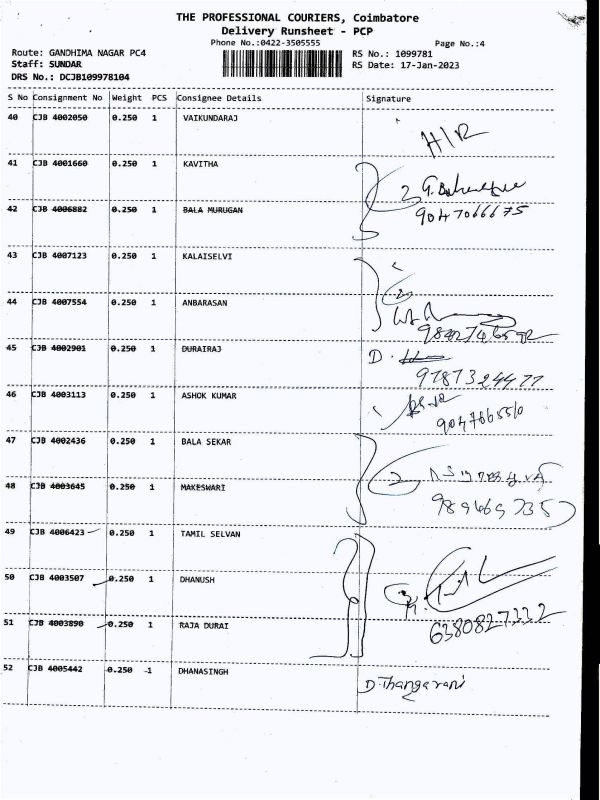 THE PROFESSIONAL COURIERS, Coimbatore
Delivery Runsheet - PCP
Phone No.:0422-3505555 Page No.:4
Route: GANDHIMA NAGAR PC4 RS No.: 1099781
Staff: SUNDAR RS Date: 17-Jan-2023
DRS No.: DCJB109978104
S No Consignment No Weight PCS Consignee Details Signature
40 CJB 4002050 0.250 1 VAIKUNDARAJ
H/R
41 CJB 4001660 0.250 1 KAVITHA
2
42 CJB 4006882 0.250 1 BALA MURUGAN 9047066675
43 CJB 4007123 0.250 1 KALAISELVI
2
44 CJB 4007554 0.250 1 ANBARASAN
45 CJB 4002901 0.250 1 DURAIRAJ D.
9787324477
46 CJB 4003113 0.250 1 ASHOK KUMAR
9047665510
47 CJB 4002436 0.250 1 BALA SEKAR
2
48 CJB 4003645 0.250 1 MAKESWARI
49 CJB 4006423 0.250 1 TAMIL SELVAN
50 CJB 4003507 0.250 1 DHANUSH
51 CJB 4003890 0.250 1 RAJA DURAI 6380827332
52 CJB 4005442 0.250 1 DHANASINGH
D.Thangarani